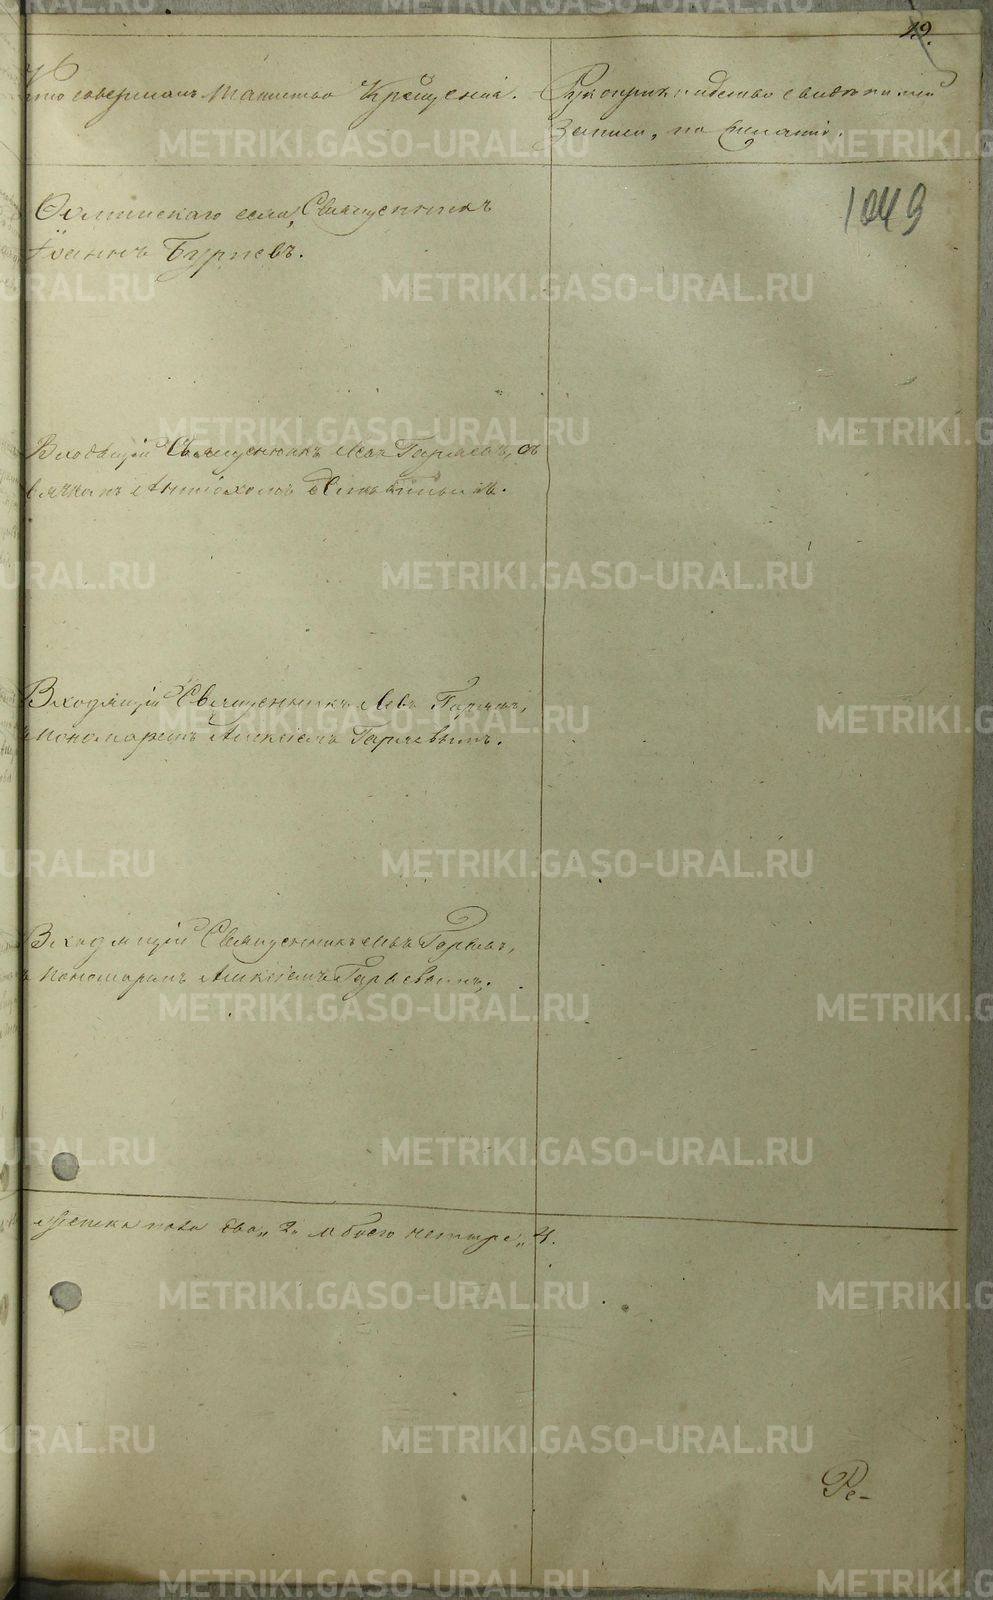 19.
Кто совершалъ таинство Крещенія.
Рукоприкладство свидѣтелей
записи, по желанію.
1049
села, Священникъ
Іоаннъ Бурневъ.
Входящій Священникъ Левъ Гаряевъ, съ
дьячкомъ Антіохомъ
Входящій Священникъ Левъ Гаряевъ,
съ пономаремъ Алексіемъ Гаряевымъ.
Входящій Священникъ Левъ Гаряевъ,
съ пономаремъ Алексіемъ Гаряевымъ.
женска пола два „2„ обоего четыре „4.
Ре-
METRIKI.GASO-URAL.RU